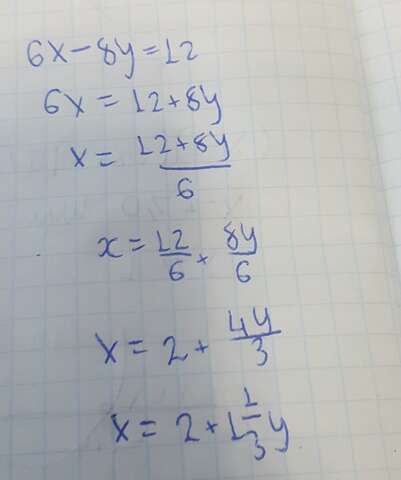 6x-8y=12
6x=12+8y
x=(12+8y)/6
x=12/6+8y/6
x=2+4y/3
x=2+1 1/3y